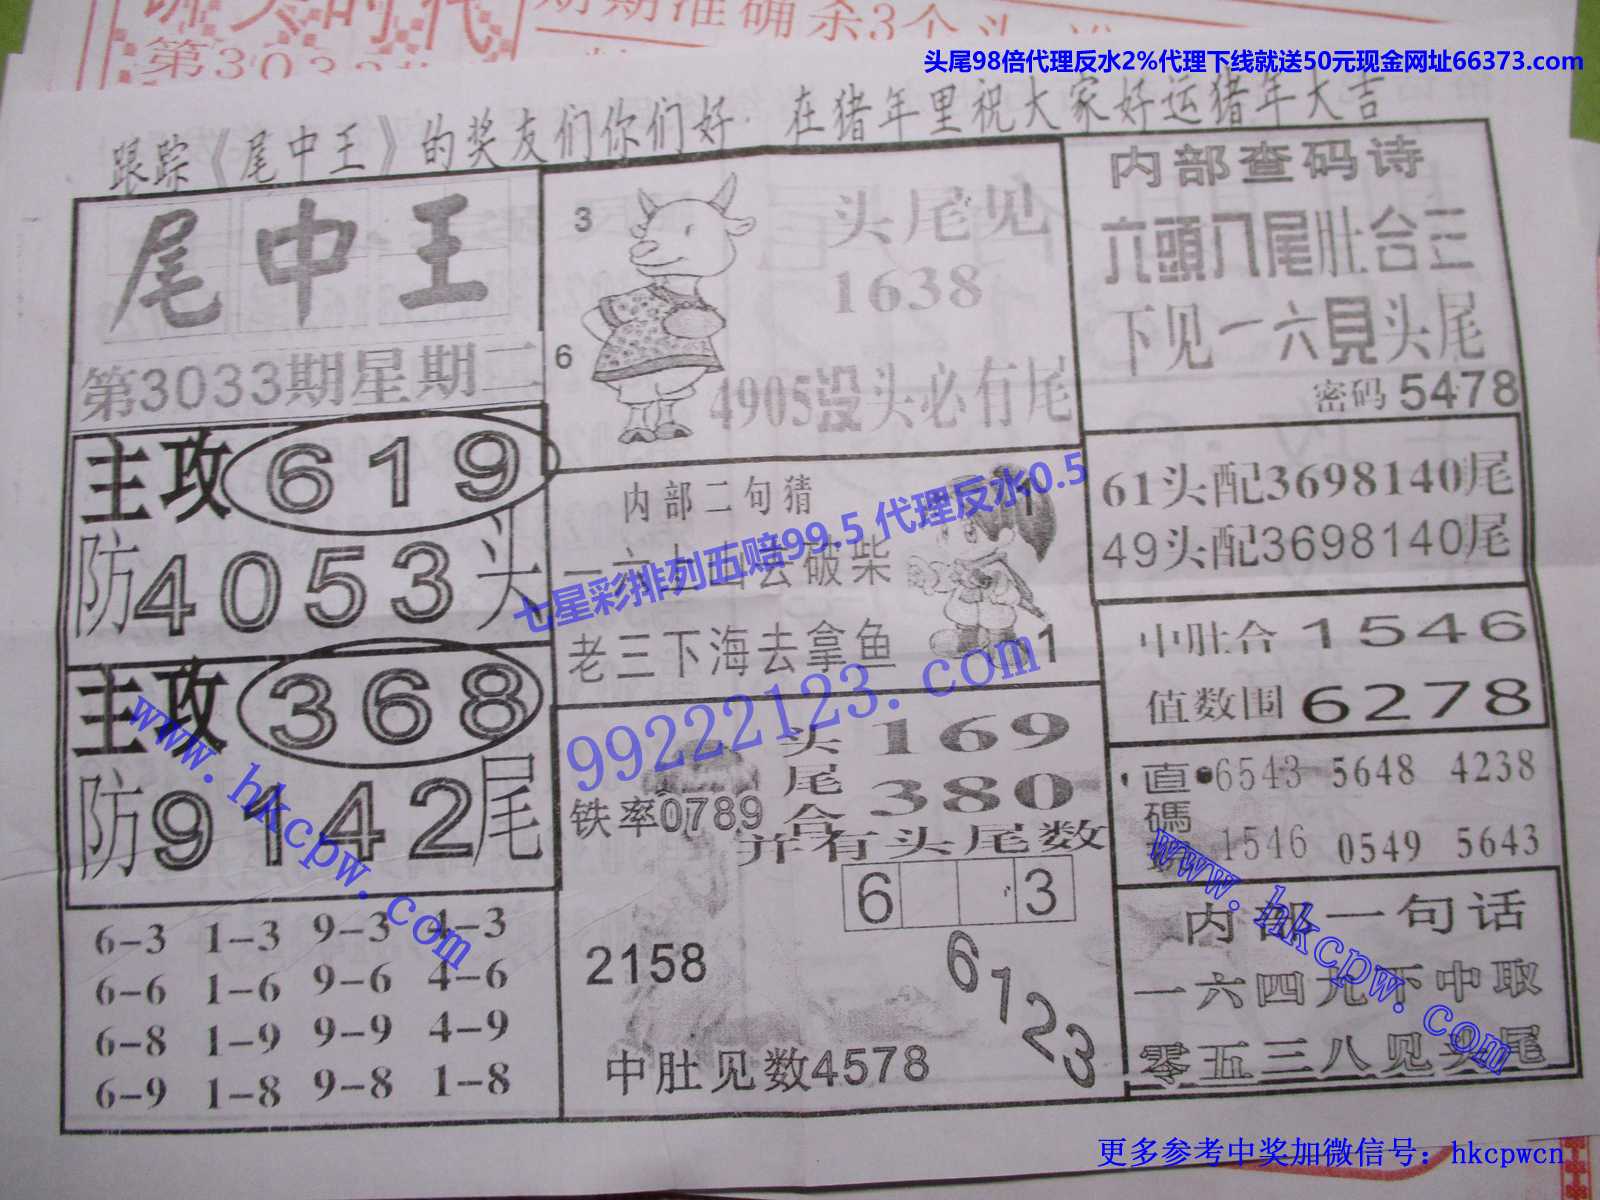 期期准确杀3个头
头尾98倍代理反水2%代理下线就送50元现金网址66373.com
跟踪《尾中王》的奖友们你们好. 在猪年里祝大家好运猪年大吉
尾中王
第3033期星期二
主攻 619
防4053头
主攻 368
防9142尾
6-3 1-3 9-3 4-3
6-6 1-6 9-6 4-6
6-8 1-9 9-9 4-9
6-9 1-8 9-8 1-8
3
6
头尾见
1638
4905没头必有尾
内部二句猜
破柴
老三下海去拿鱼
1
1
七星彩排列五赔99.5 代理反水0.5
99222123.com
头 169
尾
合 380
铁率0789
并有头尾数
6 3
2158
6123
中肚见数4578
内部查码诗
六頭八尾肚合三
下见一六見头尾
密码 5478
61头配3698140尾
49头配3698140尾
中肚合 1546
值数围 6278
直碼
6543 5648 4238
1546 0549 5643
内部一句话
一六四九下中取
零五三八见头尾
www.hkcpw.com
www.hkcpw.com
更多参考中奖加微信号：hkcpwcn